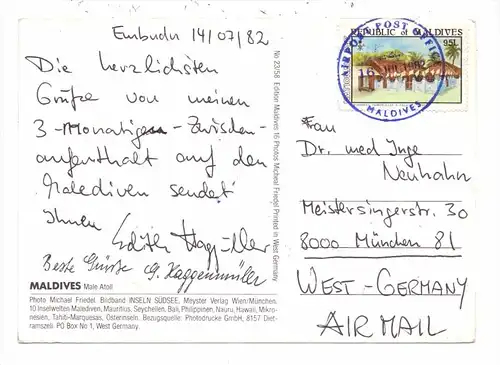 Embudu 14/07/82
Die herzlichsten
Grüße von meinen
3-Monatigen-Zwischen-
aufenthalt auf den
Malediven sendet
Ihnen
Edith
Beste Grüße G. Haggenmüller
MALDIVES Male Atoll
Photo Michael Friedel. Bildband INSELN SÜDSEE, Meyster Verlag Wien/München.
10 Inselwelten Malediven, Mauritius, Seychellen, Bali, Philippinen, Nauru, Hawaii, Mikro-
nesien, Tahiti-Marquesas, Osterinseln. Bezugsquelle: Photodrucke GmbH, 8157 Diet-
ramszell. PO Box No 1, West Germany.
No 23/58 Edition Maldives 16 Photos Michael Friedel Printed in West Germany
REPUBLIC of MALDIVES
95L
AIRPORT POST OFFICE
1982
MALDIVES
Frau
Dr. med Inge
Neuhahn
Meistersingerstr. 30
8000 München 81
WEST-GERMANY
AIR MAIL